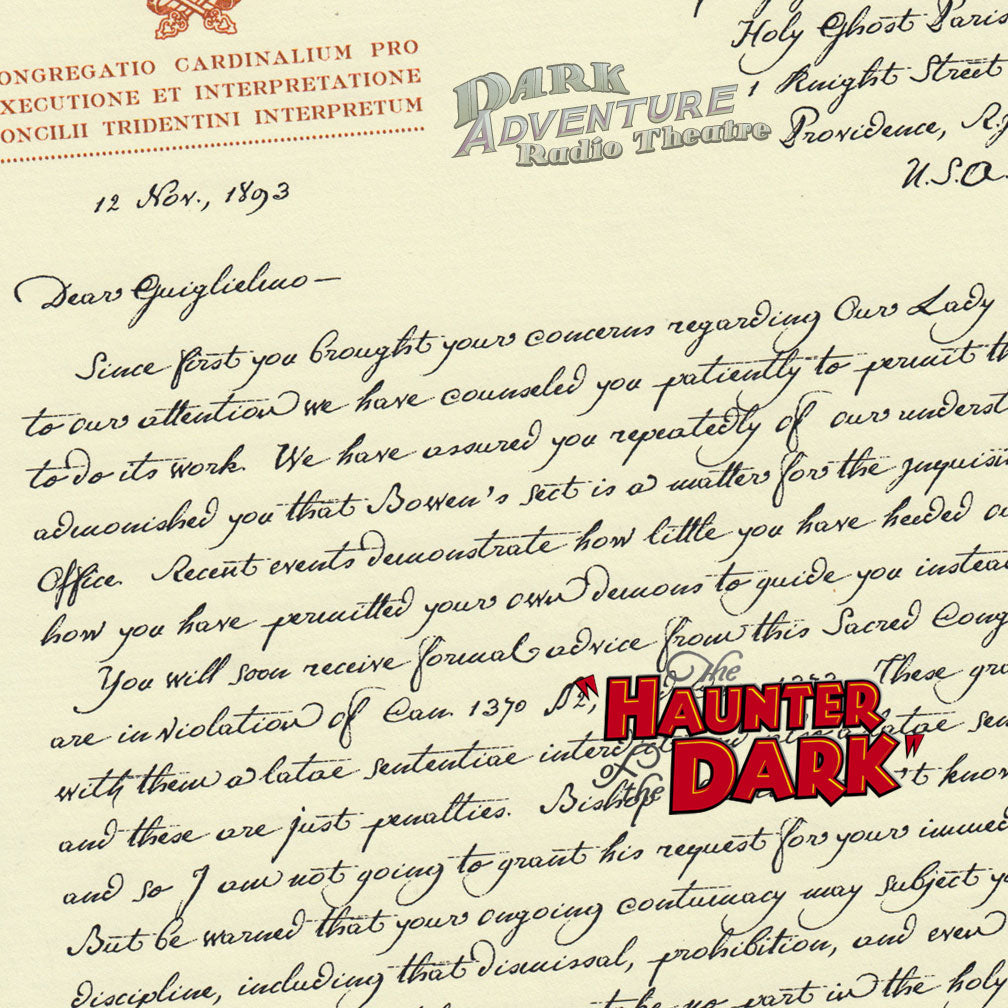 ONGREGATIO CARDINALIUM PRO
XECUTIONE ET INTERPRETATIONE
ONCILII TRIDENTINI INTERPRETUM
12 Nov., 1893
Holy Ghost Paris
1 Knight Street
Providence, R.I
U.S.A.
DARK
ADVENTURE
Radio Theatre
Dear Guiglielmo —
Since first you brought your concerns regarding Our Lady
to our attention we have counseled you patiently to permit th
to do its work. We have assured you repeatedly of our underst
admonished you that Bowen's sect is a matter for the Inquisi
Office. Recent events demonstrate how little you have heeded ou
how you have permitted your own demons to guide you instea
You will soon receive formal advice from this Sacred Cong
are in violation of Can. 1370 §2, These gra
with them a latae sententiae inter latae sen
and these are just penalties. Bishop 't know
and so I am not going to grant his request for your immed
But be warned that your ongoing contumacy may subject yo
discipline, including that dismissal, prohibition, and even
take no part in the holy
The
"HAUNTER
of the
DARK"